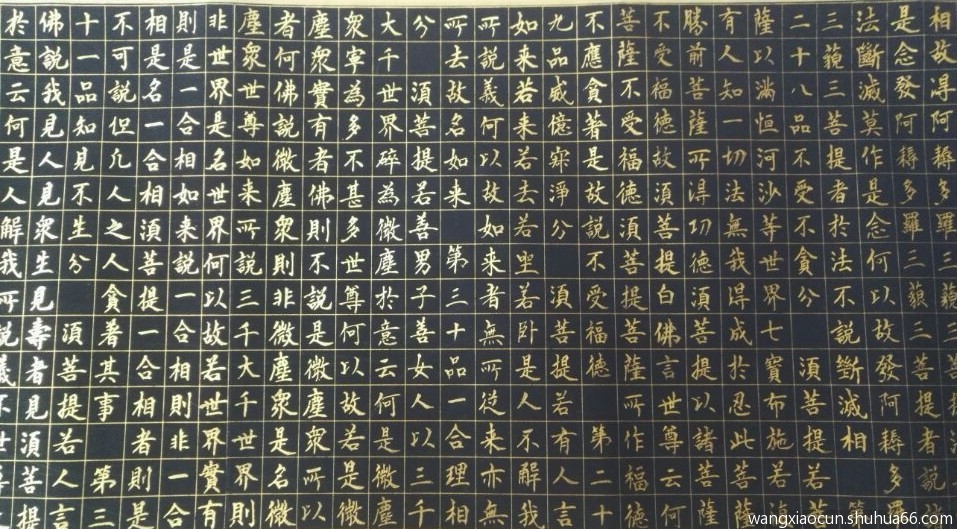 相故得阿耨多羅三藐三菩提
是念發阿耨多羅三藐三菩提者說
法斷滅莫作是念何以故發阿耨多羅
三藐三菩提者於法不說斷滅相 第
二十八品不受不貪分 須菩提若菩
薩以滿恒河沙等世界七寶布施若
有人知一切法無我得成於忍此菩薩
勝前菩薩所得功德須菩提以諸菩薩
不受福德故須菩提白佛言世尊云何
菩薩不受福德須菩提菩薩所作福德
不應貪著是故說不受福德 第二十
九品威億寂淨分 須菩提若有人言
如來若來若去若坐若臥是人不解我
所說義何以故如來者無所從來亦無
所去故名如來 第三十品一合理相
分 須菩提若善男子善女人以三千
大千世界碎為微塵於意云何是微塵
眾寧為多不甚多世尊何以故若是微
塵眾實有者佛則不說是微塵眾所以
者何佛說微塵眾則非微塵眾是名微
塵眾世尊如來所說三千大千世界則
非世界是名世界何以故若世界實有
則是一合相如來說一合相則非一合
相是名一合相須菩提一合相者則是
不可說但凡人之人貪著其事 第三
十一品知見不生分 須菩提若人言
佛說我見人見眾生見壽者見須菩提
於意云何是人解我所說義不世
wangxiaocun.shuhua66.com